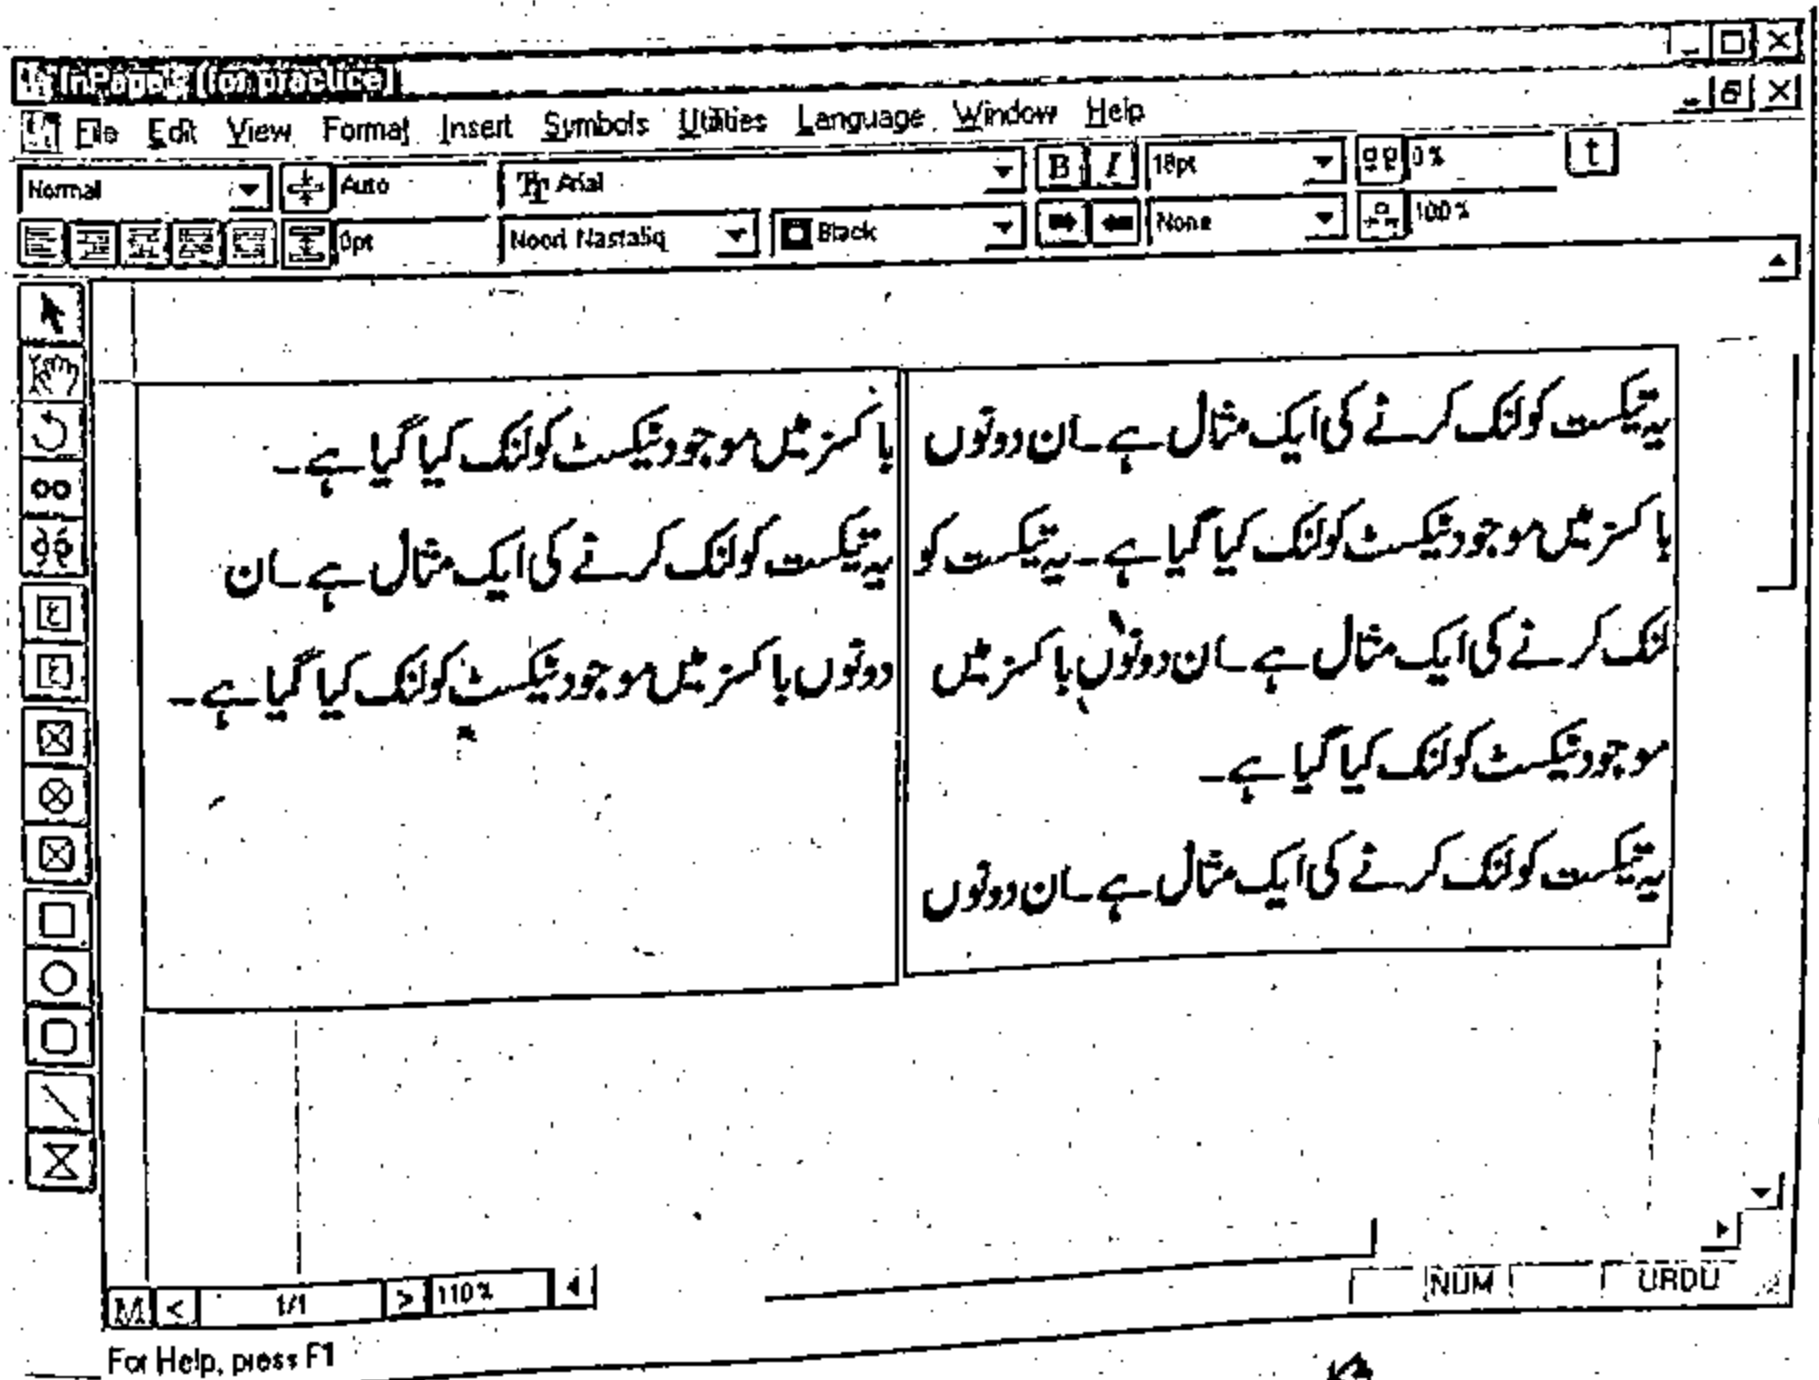 InPage (for practice)
File Edit View Format Insert Symbols Utilities Language Window Help
Normal Auto Arial B I 18pt 0% t
0pt Noori Nastaliq Black None 100%
یہ ٹیکسٹ کو لنک کرنے کی ایک مثال ہے۔ ان دونوں
باکسز میں موجود ٹیکسٹ کو لنک کیا گیا ہے۔ یہ ٹیکسٹ کو
لنک کرنے کی ایک مثال ہے۔ ان دونوں باکسز میں
موجود ٹیکسٹ کو لنک کیا گیا ہے۔
یہ ٹیکسٹ کو لنک کرنے کی ایک مثال ہے۔ ان دونوں
باکسز میں موجود ٹیکسٹ کو لنک کیا گیا ہے۔
یہ ٹیکسٹ کو لنک کرنے کی ایک مثال ہے۔ ان
دونوں باکسز میں موجود ٹیکسٹ کو لنک کیا گیا ہے۔
M < 1/1 > 110%
NUM URDU
For Help, press F1